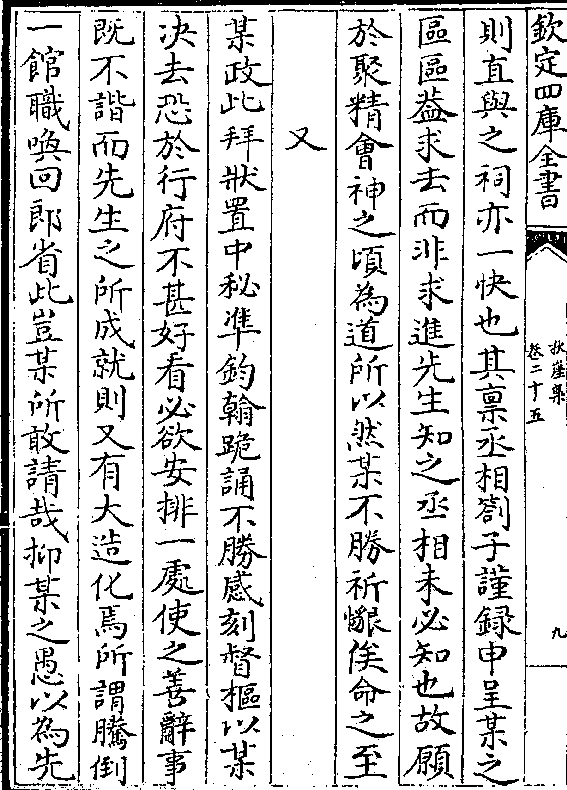 欽定四庫全書
秋崖集
卷二十五
九
則直與之祠亦一快也其稟丞相劄子謹録申呈某之
區區葢求去而非求進先生知之丞相未必知也故願
於聚精會神之頃為道所以然某不勝祈懇俟命之至
又
某政此拜狀置中秘準鈞翰跪誦不勝感刻督樞以某
决去恐於行府不甚好看必欲安排一處使之善辭事
既不諧而先生之所成就則又有大造化焉所謂騰倒
一館職喚回郎省此豈某所敢請哉抑某之愚以為先